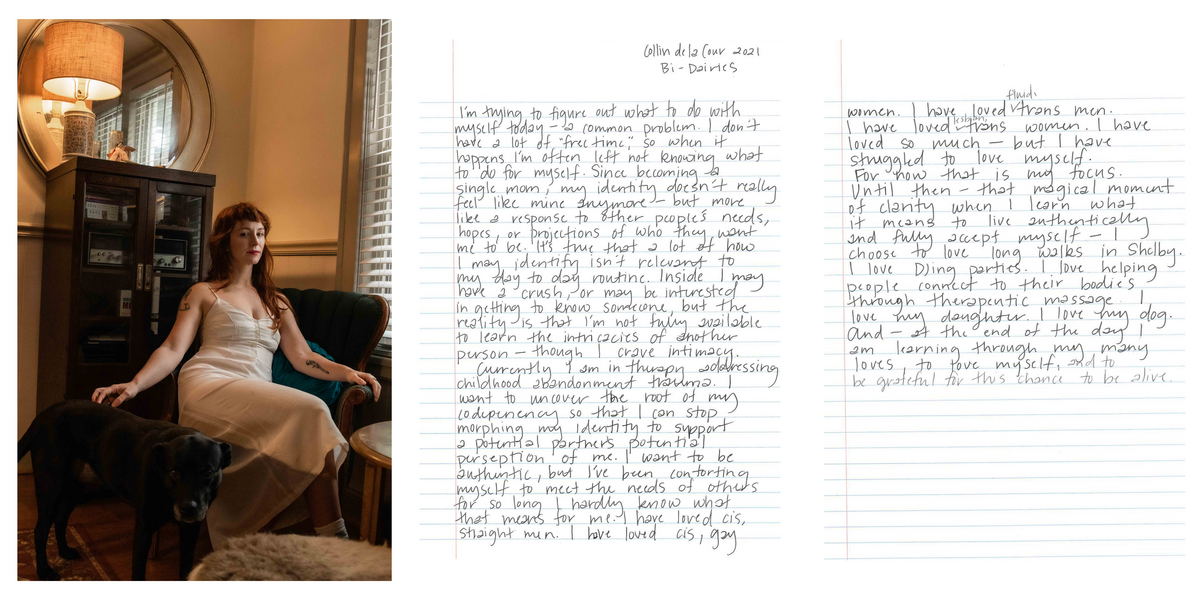 Collin de la Cour 2021
Bi-Dairies
I'm trying to figure out what to do with
myself today - a common problem. I don't
have a lot of "free time," so when it
happens I'm often left not knowing what
to do for myself. Since becoming a
single mom, my identity doesn't really
feel like mine anymore - but more
like a response to other people's needs,
hopes, or projections of who they want
me to be. It's true that a lot of how
I may identify isn't relevant to
my day to day routine. Inside I may
have a crush, or may be interested
in getting to know someone, but the
reality is that I'm not fully available
to learn the intricacies of another
person - though I crave intimacy.
Currently I am in therapy addressing
childhood abandonment trauma. I
want to uncover the root of my
codependency so that I can stop
morphing my identity to support
a potential partner's potential
perseption of me. I want to be
authentic, but I've been contorting
myself to meet the needs of others
for so long I hardly know what
that means for me. I have loved cis,
straight men. I have loved cis, gay
fluid,
women. I have loved trans men.
lesbian,
I have loved trans women. I have
loved so much - but I have
struggled to love myself.
For now that is my focus.
Until then - that magical moment
of clarity when I learn what
it means to live authentically
and fully accept myself - I
choose to love long walks in Shelby.
I love DJing parties. I love helping
people connect to their bodies
through therapeutic massage. I
love my daughter. I love my dog.
And - at the end of the day I
am learning through my many
loves, to love myself, and to
be grateful for this chance to be alive.